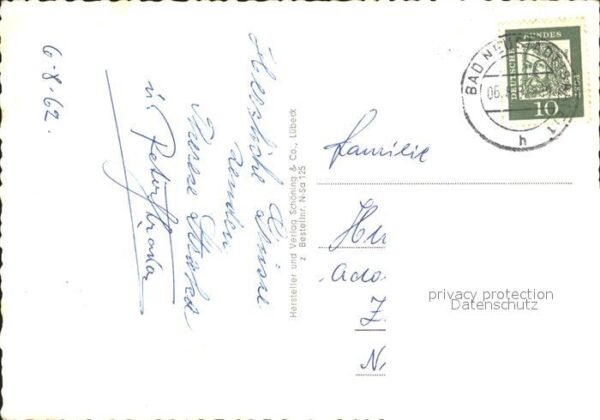 6-8-62.
Herzliche Grüsse
senden
Therese
u. Peter
Hersteller und Verlag Schöning & Co., Lübeck
z. Bestellnr. N-Sa 125
DEUTSCHE BUNDESPOST
10
BAD NEUSTADT
06.
h
Familie
Her
Ado
Z
N
privacy protection
Datenschutz